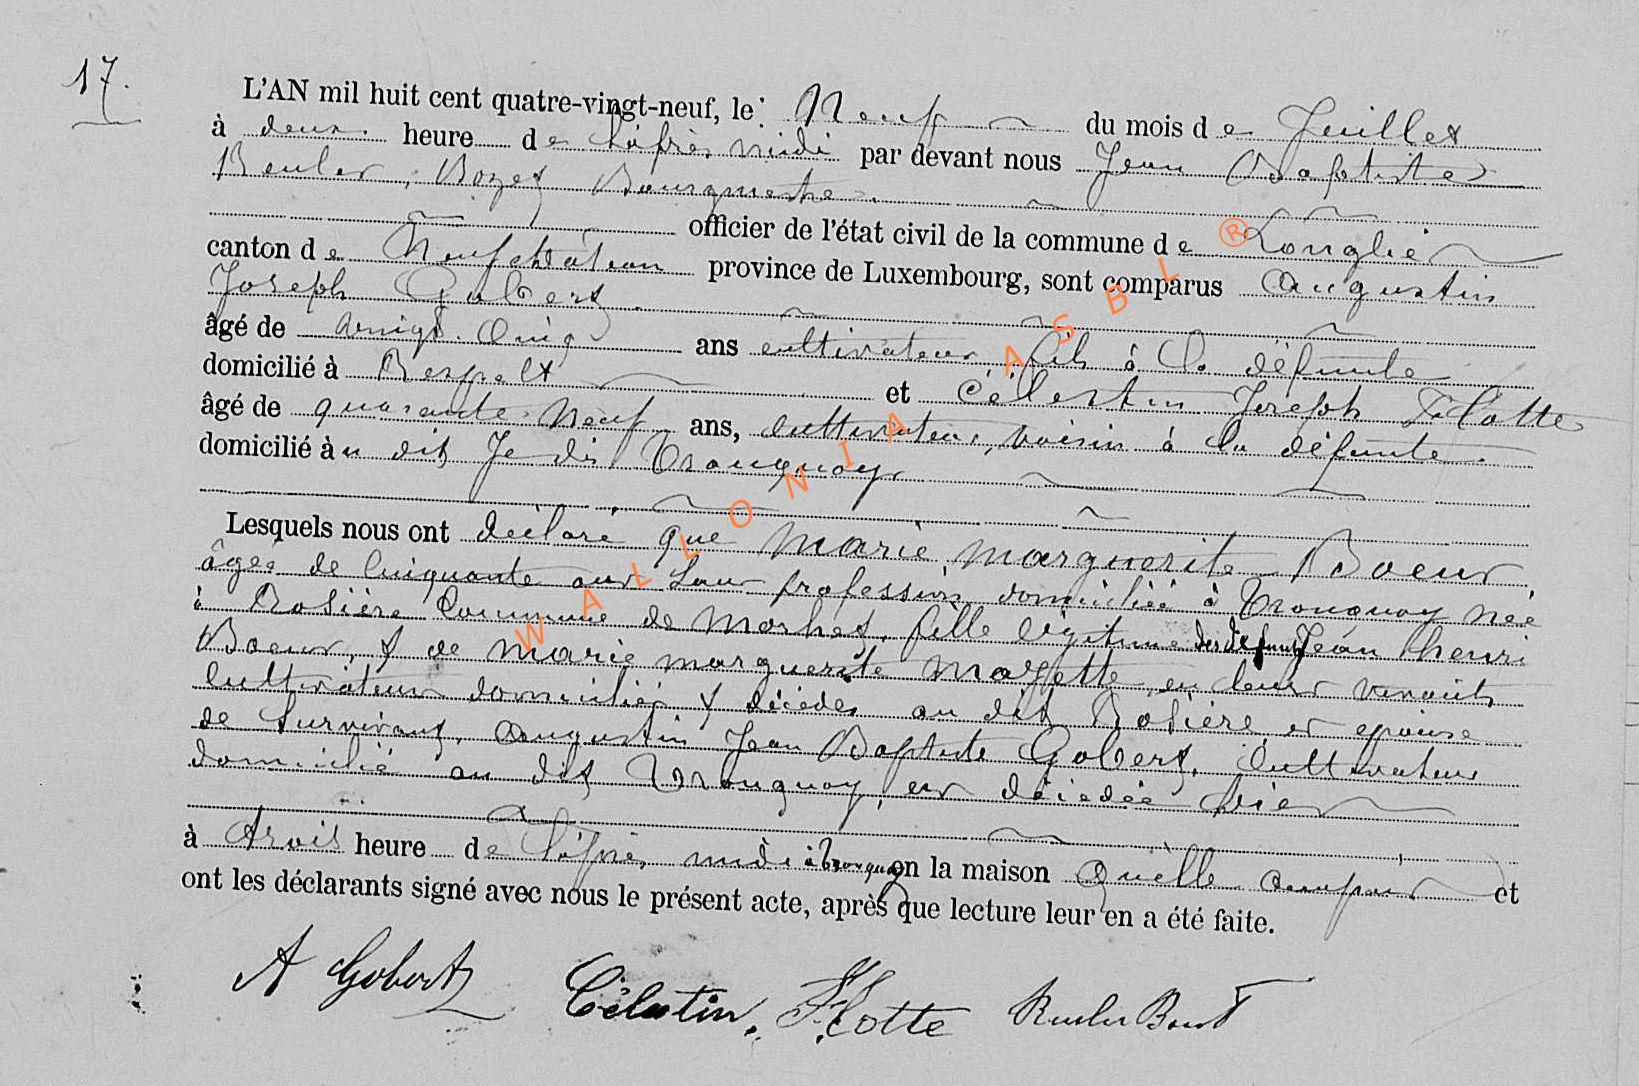 17.
L'AN mil huit cent quatre-vingt-neuf, le Neuf du mois de Juillet
à deux heure de l'après midi par devant nous Jean Baptiste
Reuler, Bourgmestre.
officier de l'état civil de la commune de Longlier
canton de Neufchâteau province de Luxembourg, sont comparus Augustin
Joseph Gobert
âgé de vingt cinq ans cultivateur fils à la défunte
domicilié à Respelt et Célestin Joseph Flotte
âgé de quarante neuf ans, cultivateur, voisin à la défunte.
domicilié au dit Tronquoy
Lesquels nous ont déclaré que Marie Marguerite Boeur
âgée de cinquante ans sans profession domiciliée à Tronquoy née
à Rosière commune de Morhet, fille légitime des défunts Jean henri
Boeur, & de Marie Marguerite Mayette en leur vivants
cultivateurs domiciliés & décédés au dit Rosière, et épouse
de survivant, Augustin Jean Baptiste Gobert, Cultivateur
domicilié au dit Tronquoy, est décédée hier
à trois heure de l'après midi à Tronquoy en la maison qu'elle occupait et
ont les déclarants signé avec nous le présent acte, après que lecture leur en a été faite.
A Gobert Célestin. Flotte Reuler
WALLONIA ASBL ®